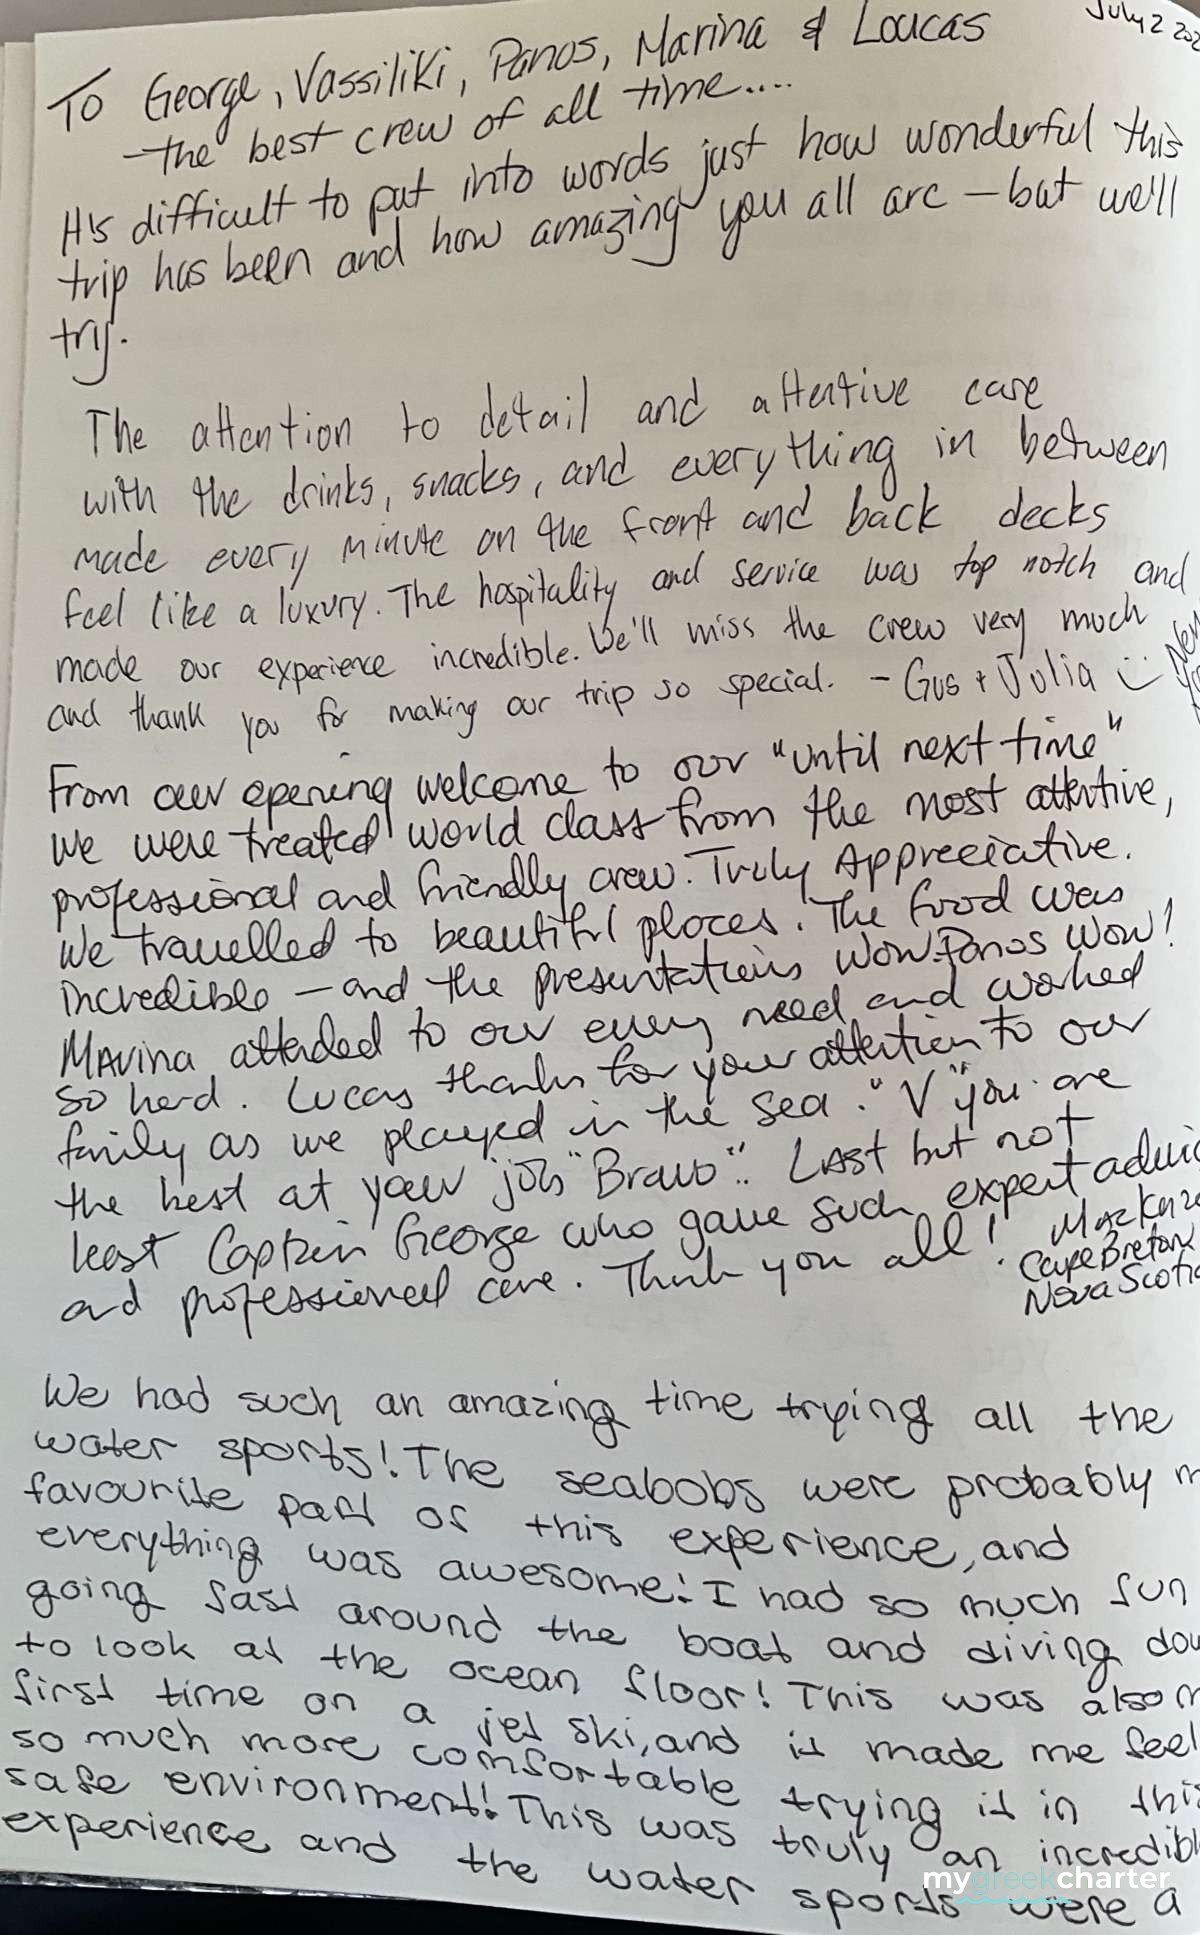 July 2 202
To George, Vassiliki, Panos, Marina & Loucas
- the best crew of all time....
It's difficult to put into words just how wonderful this
trip has been and how amazing you all are - but we'll
try.
The attention to detail and attentive care
with the drinks, snacks, and everything in between
made every minute on the front and back decks
feel like a luxury. The hospitality and service was top notch and
made our experience incredible. We'll miss the crew very much
and thank you for making our trip so special. - Gus + Julia
New
From our opening welcome to our "until next time"
we were treated world class from the most attentive,
professional and friendly crew. Truly Appreciative.
We travelled to beautiful places. The food was
incredible - and the presentations wow. Panos wow!
Marina attended to our every need and worked
so hard. Lucas thanks for your attention to our
family as we played in the sea. "V" you are
the best at your job "Bravo". Last but not
least Captain George who gave such expert advic
and professional care. Thank you all!
Cape Breton
Nova Scotia
We had such an amazing time trying all the
water sports! The seabobs were probably m
favourite part of this experience, and
everything was awesome! I had so much fun
going fast around the boat and diving dow
to look at the ocean floor! This was also m
first time on a jet ski, and it made me feel
so much more comfortable trying it in this
safe environment! This was truly an incredibl
experience and the water sports were a
mygreekcharter